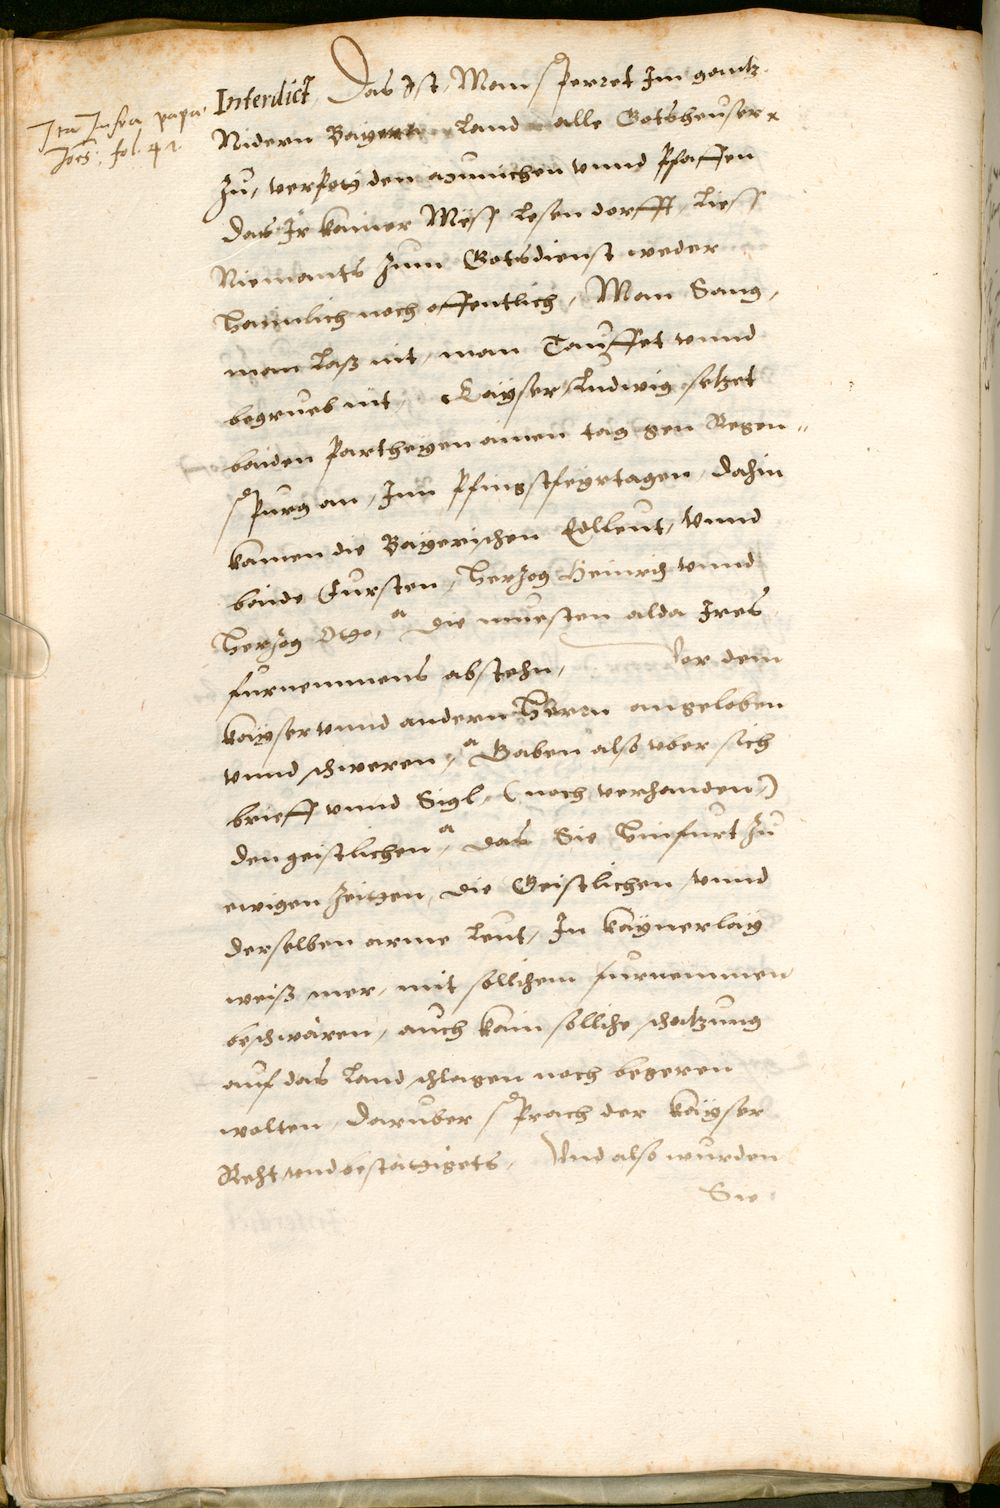 Ita Infra papa
Joes. fol. 42
Interdict, Das Ist, Man sperret Im gantz
Nidern Bayern Land alle Gotsheuser
zu, verpot den Munichen vnnd Pfaffen
das Ir kainer Mëss lesen dorfft, Liess
Niemants zum Gotsdienst weder
haimlich noch offentlich, Man Sang,
man laß nit, man Tauffet vnnd
begrueb nit, Kayser Ludwig setzet
baiden Partheyen ainen tag gen Regen-
spurg an, Inn Pfingstfeyrtagen, dahin
kamen die Bayerischen Edlleut, vnnd
baide Fursten, Herzog Heinrich vnnd
Herzog Otho, die muesten alda Ires
furnemmens abstehn, Vor dem
kayser vnnd andern Herrn angeloben
vnnd schweren, Gaben also vber sich
brieff vnnd Sigl, (noch verhanden,)
den geistlichen, das Sie hinfurt zu
ewigen Zeitten, die Geistlichen vnnd
derselben arme leut, In kaynerlay
weiß mer, mit sollichem furnemmen
beschwären, auch kain solliche schatzung
auf das land schlagen noch begeren
wolten, daruber sprach der kayser
Reht vnd bestattigets, Vnd also wurden
Sie